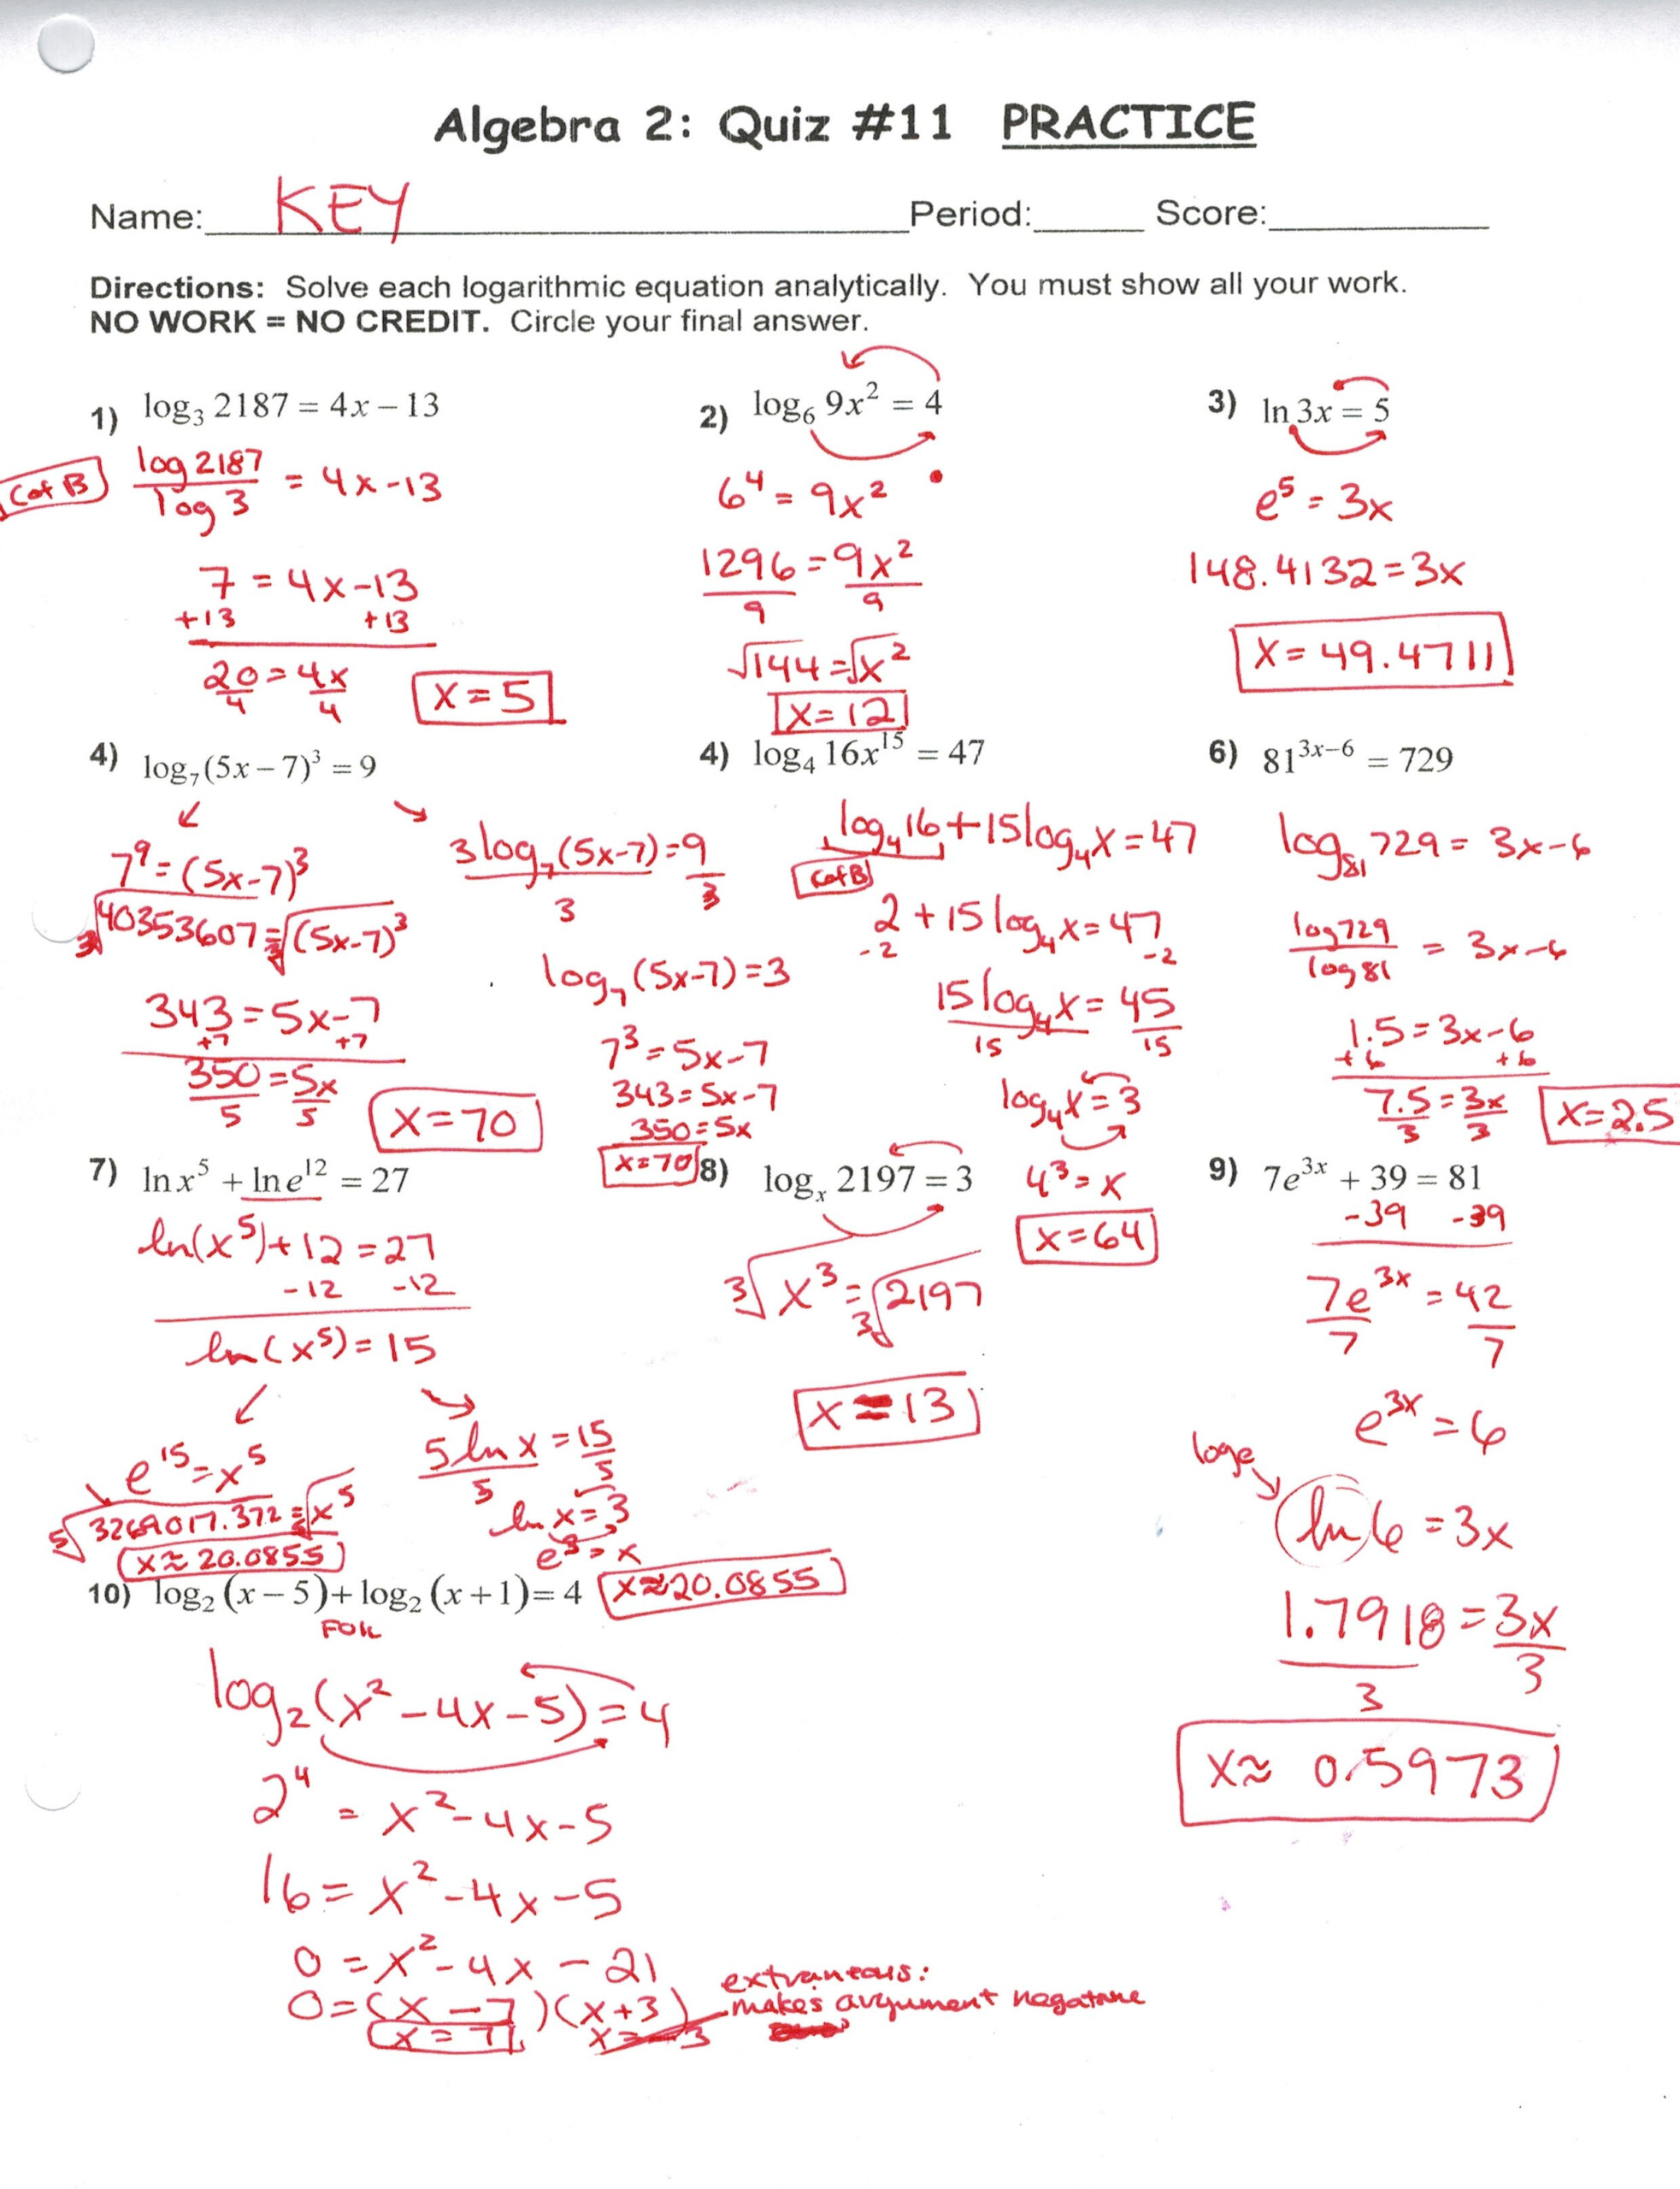 Algebra 2: Quiz #11 PRACTICE
Name: KEY Period: Score:
Directions: Solve each logarithmic equation analytically. You must show all your work.
NO WORK = NO CREDIT. Circle your final answer.
1) log₃ 2187 = 4x – 13
Cof B
log 2187 / log 3 = 4x-13
7 = 4x-13
+13 +13
20/4 = 4x/4
x = 5
2) log₆ 9x² = 4
6⁴ = 9x²
1296/9 = 9x²/9
√144 = √x²
x = 12
3) ln 3x = 5
e⁵ = 3x
148.4132 = 3x
x = 49.4711
4) log₇(5x – 7)³ = 9
7⁹ = (5x-7)³
³√40353607 = ³√(5x-7)³
343 = 5x-7
+7 +7
350/5 = 5x/5
x = 70
3log₇(5x-7)/3 = 9/3
log₇(5x-7) = 3
7³ = 5x-7
343 = 5x-7
350 = 5x
x = 70
4) log₄ 16x¹⁵ = 47
log₄16 + 15log₄x = 47
Cof B
2 + 15log₄x = 47
-2 -2
15log₄x/15 = 45/15
log₄x = 3
4³ = x
x = 64
6) 81³ˣ⁻⁶ = 729
log₈₁ 729 = 3x-6
log 729 / log 81 = 3x-6
1.5 = 3x-6
+6 +6
7.5/3 = 3x/3
x = 2.5
7) ln x⁵ + ln e¹² = 27
ln(x⁵) + 12 = 27
-12 -12
ln(x⁵) = 15
e¹⁵ = x⁵
⁵√3269017.372 = ⁵√x⁵
x ≈ 20.0855
5 ln x/5 = 15/5
ln x = 3
e³ = x
x ≈ 20.0855
8) logₓ 2197 = 3
³√x³ = ³√2197
x = 13
9) 7e³ˣ + 39 = 81
-39 -39
7e³ˣ/7 = 42/7
e³ˣ = 6
loge
ln 6 = 3x
1.7918/3 = 3x/3
x ≈ 0.5973
10) log₂(x – 5) + log₂(x + 1) = 4
FOIL
log₂(x² - 4x - 5) = 4
2⁴ = x² - 4x - 5
16 = x² - 4x - 5
0 = x² - 4x - 21
0 = (x - 7)(x + 3)
x = 7 x = -3
extraneous:
makes argument negatave